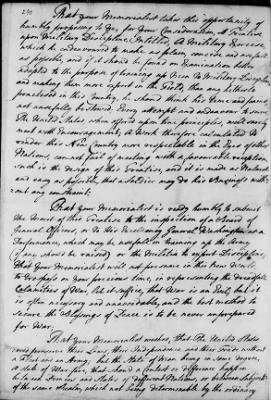 That your Memorialist takes this opportunity of
humbly proposing to you, for your Consideration, A Treatise
upon Military Discipline, Entitled, A Military Exercise,
which he endeavoured to make as plain, concise, and easy
as possible, and if it should be found on Examination better
adapted to the purpose of learning up Men to Military Discipline
and making them more expert in the Field, than any hitherto
practised in this manner, he should think his time and pains
not uselessly bestowed. Every attempt and endeavour to serve
The United States when offered upon true principles, will ever
meet with Encouragements, a Work therefore calculated to
render this New Country more respectable in the Eyes of other
Nations, cannot fail of meeting with a favourable reception
such is the Design of this Treatise, and it is made as Natural
and easy as possible, that a Soldier may do his Business with-
out any
That your Memorialist is ready humbly to submit
the Merit of this Treatise to the inspection of a Board of
General Officers, or to His Excellency General Washington, as a
Performance, which may be useful in training up the Army
(if any should be raised) or the Militia to expert Discipline,
That your Memorialist will not presume in this New World
to trespass on your precious time, in representing the dreadful
Calamities of War, let it suffice, that War is an Evil, but it
is often necessary and unavoidable, and the best method to
secure the Blessings of Peace is to be never unprepared
for War.
That your Memorialist wishes, that The United States
could preserve their Laws, their Independence, and their Trade without
a Fleet or an Army, but the State of Man being in some degree,
a state of War, for, that should a Contest or difference happen
between Princes and States of different Nations, or between Subjects
of the same State, which not being determinable by the ordinary